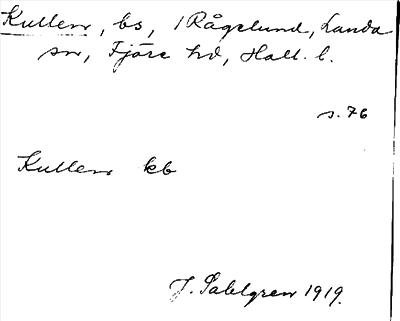 Kullen, bs, /Rågelund, Landa
sn, Fjäre hd, Hall. l.
s. 76
Kullen kb
J. Sahlgren 1919.